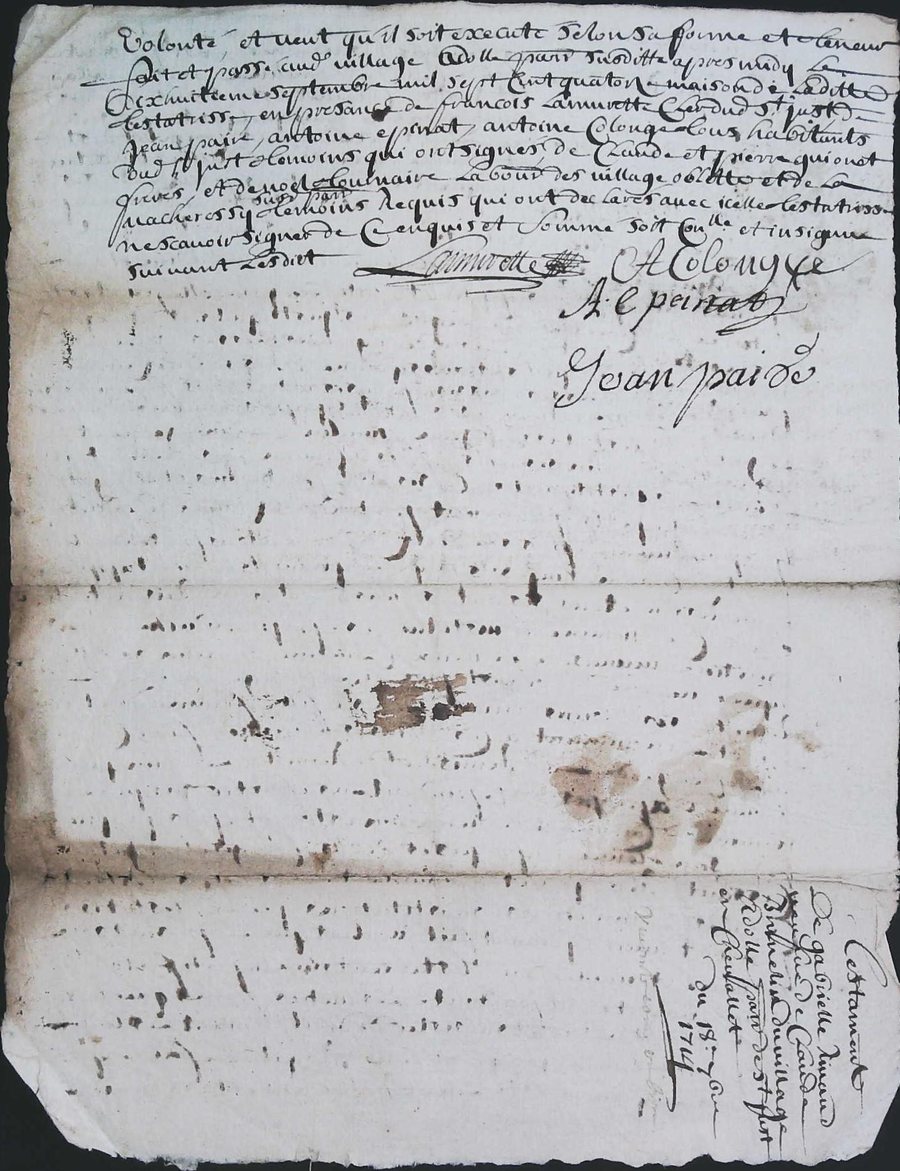 volonté, et veut qu'il soit execute selon sa forme et teneur
fait et passé aud village dolle parr susditte apres midy le
dixhuitieme septembre mil sept cent quatorze maison de laditte
testatrisse, en presance de françois Lamurette Clerdud st just, de
jean paire, antoine epinat, antoine Colonge tous habitants
dud st just temoins qui ont signes, de Claude et pierre
freres, et de noel labour des village et de la
susd parr
temoins Requis qui ont declarés avec icelle testatrisse
ne scavoir signer de ce enquis et sommé soit conlle et insigne
suivant Ledict
Lamurette A Colongxe
A. Epeinat
Jean paire
Testament
De gabrielle
vefue de Claude
du village
dolle parr de st just
en Chevallet
du 18e 7bre
1714